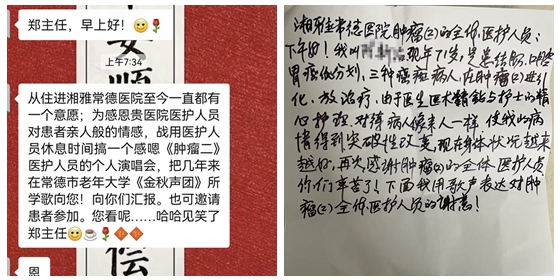 郑主任，早上好！
上午7:34
从住进湘雅常德医院至今一直都有
一个意愿；为感恩贵医院医护人员
对患者亲人般的情感，战用医护人
员休息时间搞一个感嗯《肿瘤二》
医护人员的个人演唱会，把几年来
在常德市老年大学《金秋声团》所
学歌向您！向你们汇报。也可邀请
患者参加。您看呢……哈哈见笑了
郑主任
恩
顺
湘雅常德医院肿瘤(2)的全体医护人员:
下午好！我叫 现年71岁,是患结肠、口腔
胃癌低分划,三种癌症病人,在肿瘤(2)进行
化、放治疗,由于医生医术精钻与护士的精
心护理,对待病人像亲人一样,使我的病
情得到突破性改变,现在身体状况越来
越好,再次感谢肿瘤(2)的全体医护人员
你们辛苦了！下面我用歌声表达对肿
瘤(2)全体医护人员的谢意！